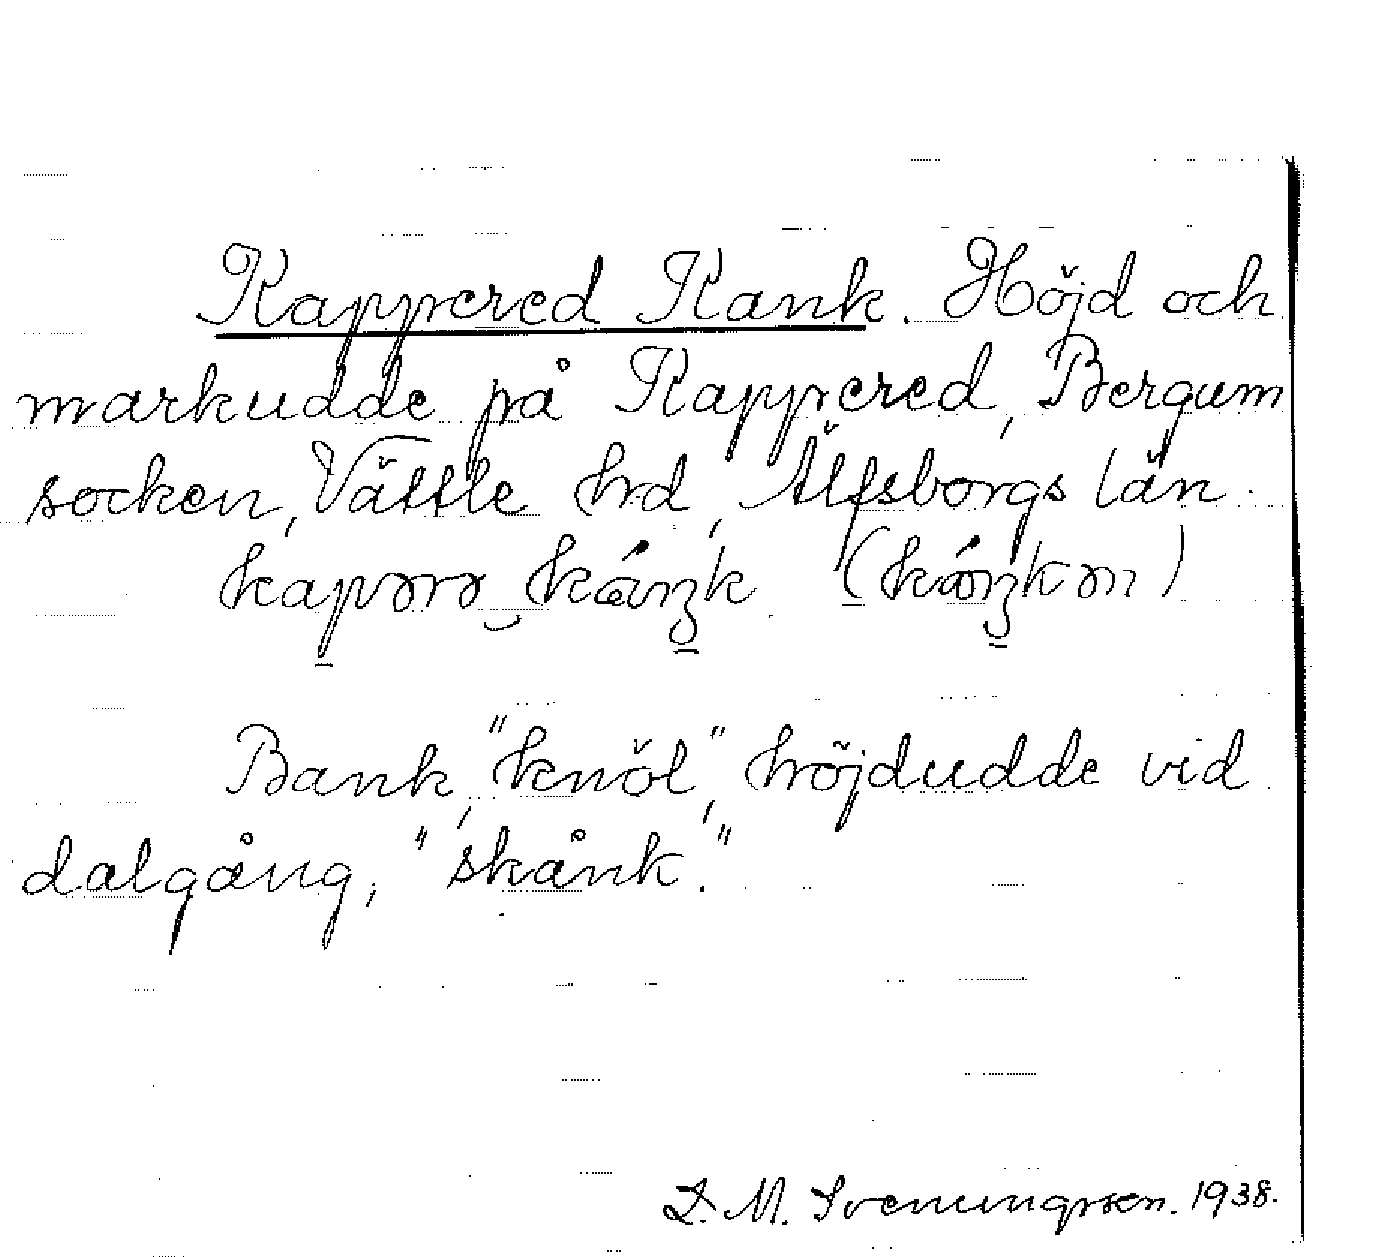 Kappered Kank. Höjd och
markudde på Kappered, Bergum
socken, Vättle hrd, Älfsborgs län.
Bank, "knöl", höjdudde vid
dalgång, "skånk."
D. M. Sveningsson. 1938.